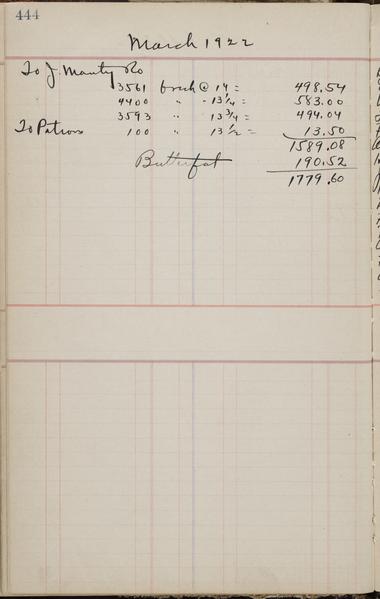 444
March 1922
To J.
3561 fresh @ 14 = 498.54
4400 " - 13 1/4 = 583.00
3593 " 13 3/4 = 494.04
To Patrons 100 " 13 1/2 = 13.50
1589.08
Butterfat 190.52
1779.60